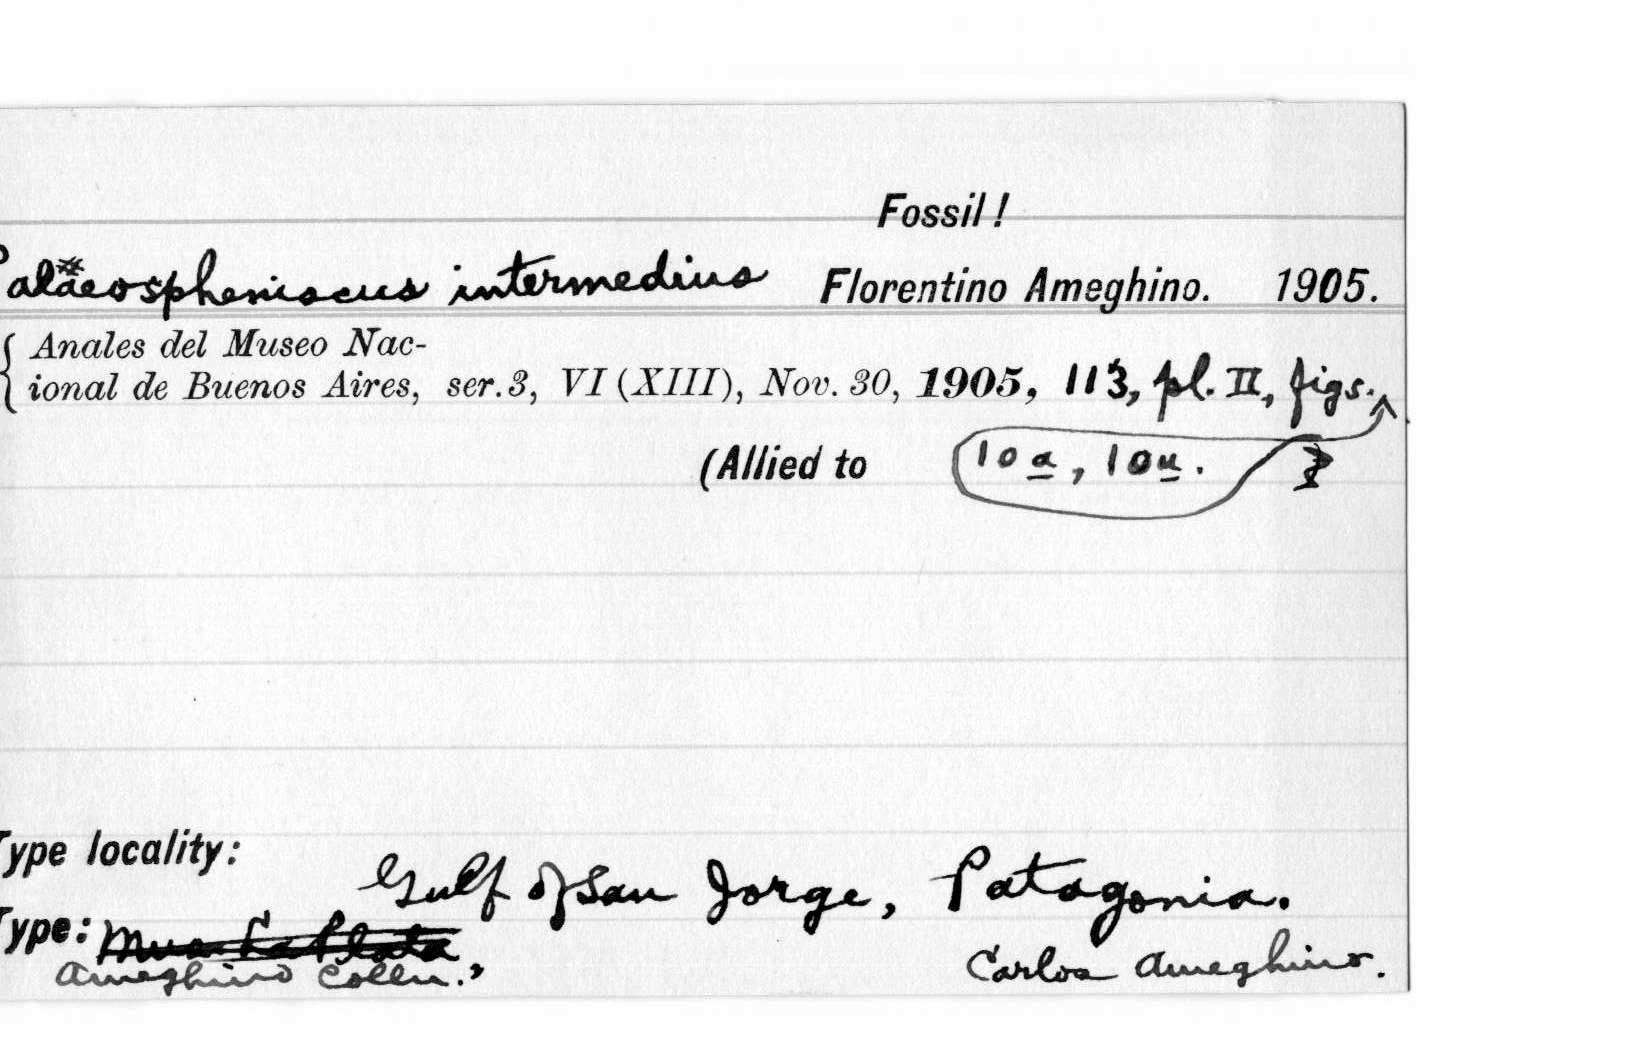 Fossil!
Palaeospheniscus intermedius Florentino Ameghino. 1905.
{ Anales del Museo Nac-
ional de Buenos Aires, ser. 3, VI (XIII), Nov. 30, 1905, 113, pl. II, figs.
(Allied to 10a, 10u.
Type locality:
Gulf of San Jorge, Patagonia.
Type: Mus. La Plata
Ameghino Colln.,
Carlos Ameghino.